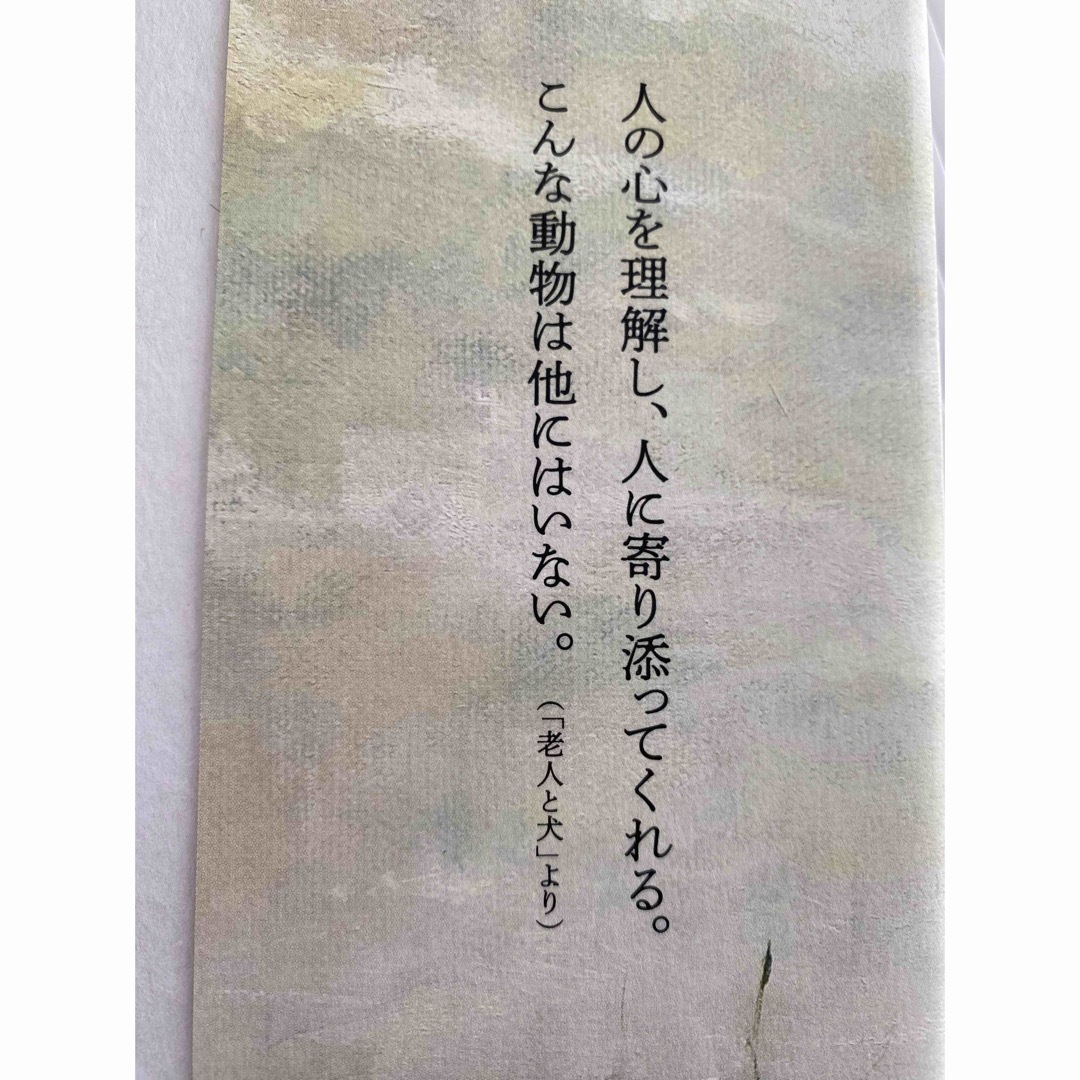 人の心を理解し、人に寄り添ってくれる。
こんな動物は他にはいない。（「老人と犬」より）